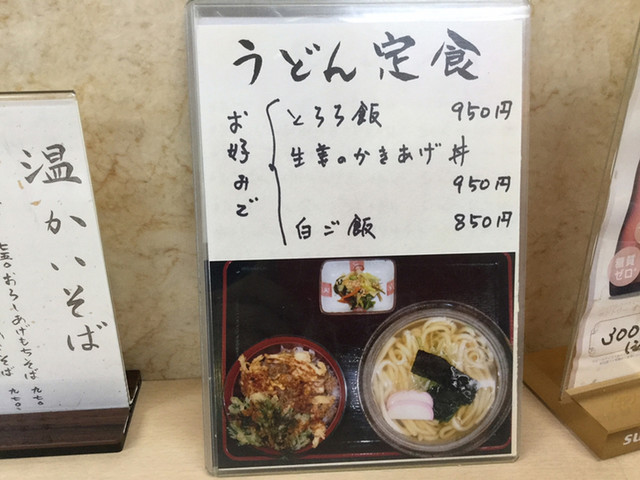 うどん定食
お好みで
とろろ飯 950円
生姜のかきあげ丼
950円
白ご飯 850円
温かいそば
おろしあげもちそば 九七〇
そば 九七〇
糖質
ゼロ
300